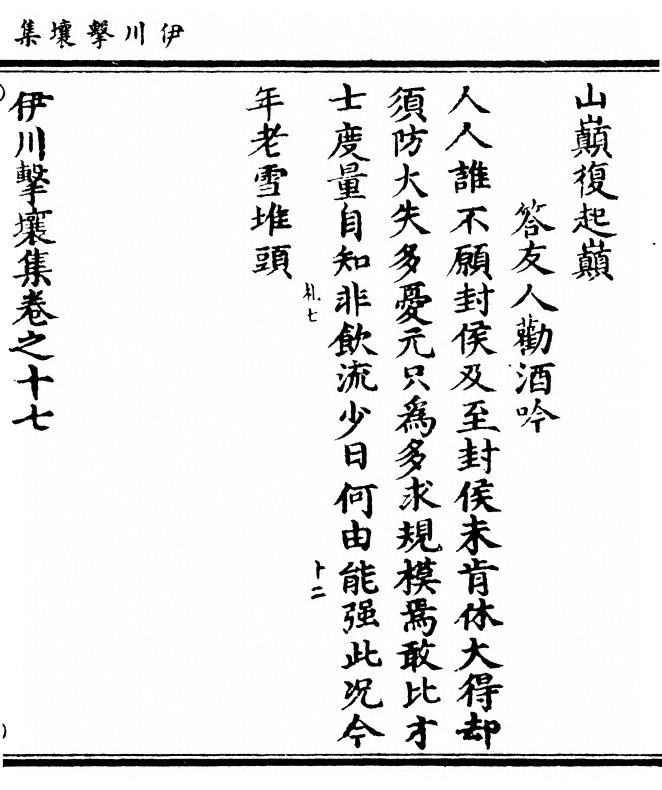 伊川擊壤集
山巔復起巔
答友人勸酒吟
人人誰不願封侯及至封侯未肯休大得却
須防大失多憂元只爲多求規模焉敢比才
士度量自知非飲流少日何由能强此況今
年老雪堆頭
札七
卜二
伊川擊壤集卷之十七